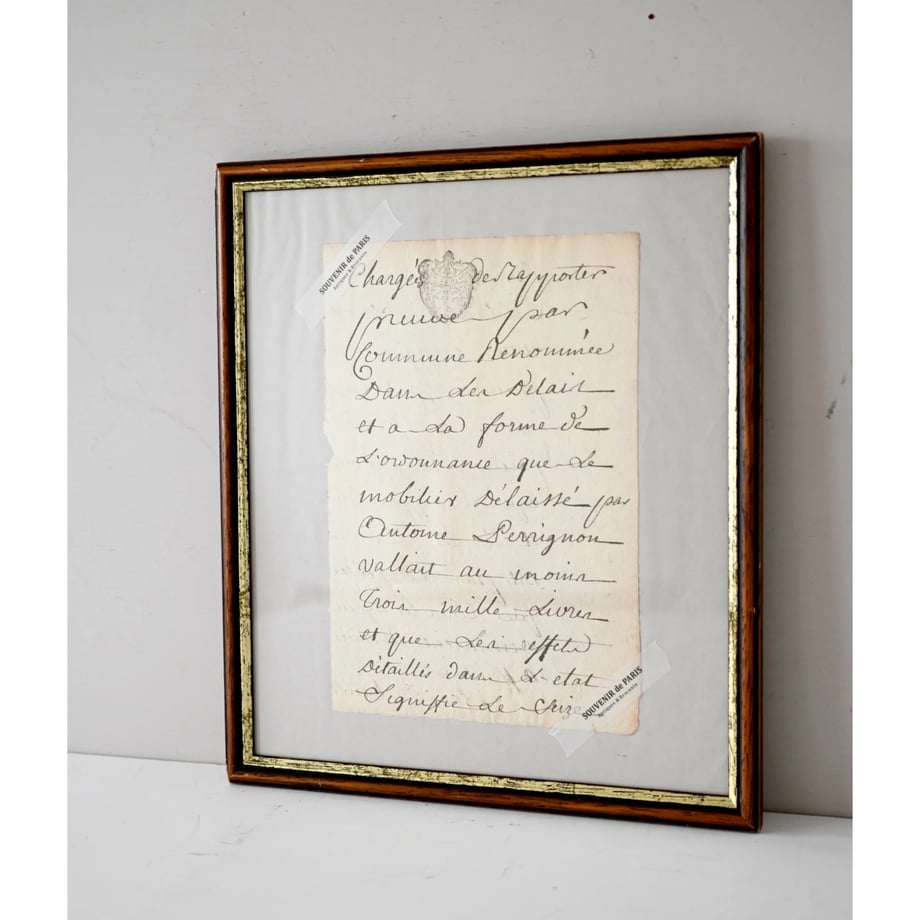 SOUVENIR de PARIS
Antiques & Brocante
Chargés de Rapporter
preuve par
Commune Renommée
Dans Les Délais
et a La forme de
L'ordonnance que Le
mobilier Délaissé par
Antoine Perrignon
vallait au moins
Trois mille Livres
et que Les effets
Détaillés dans L'etat
Signiffié Le Seize
SOUVENIR de PARIS
Antiques & Brocante